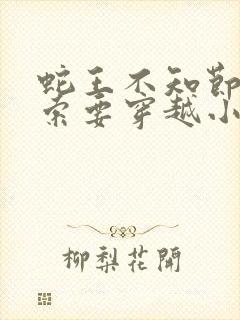 蛇王不知節
索要穿越小
柳梨花開